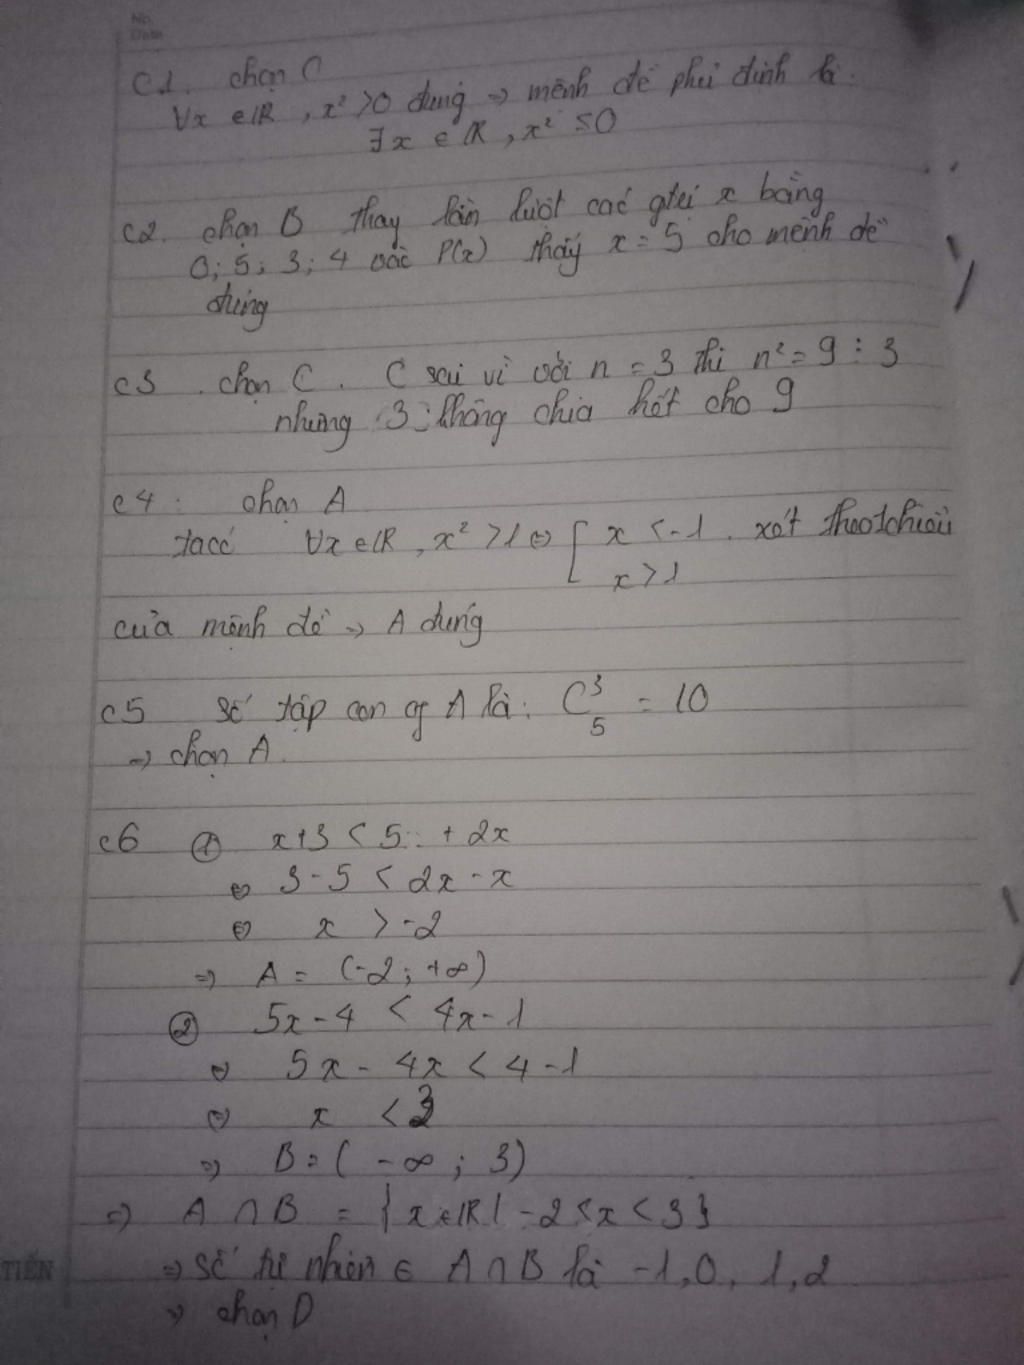 No.
Date
C1. chọn C
∀x ∈ ℝ, x² > 0 đúng ⇒ mệnh đề phủ định là.
∃x ∈ ℝ, x² ≤ 0
C2. chọn B thay lần lượt các gtrị x bằng
0; 5; 3; 4 vào P(x) thấy x = 5 cho mệnh đề
đúng
C3. chọn C. C sai vì với n = 3 thì n² = 9 ⋮ 3
nhưng 3 không chia hết cho 9
C4: chọn A
ta có ∀x ∈ ℝ, x² > 1 ⇔ [ x < -1. xét theo 1 chiều
x > 1
của mệnh đề ⇒ A đúng
C5 Số tập con of A là: C³₅ = 10
⇒ chọn A.
C6 ① x+3 < 5 + 2x
⇔ 3-5 < 2x-x
⇔ x > -2
⇒ A = (-2; +∞)
② 5x-4 < 4x-1
⇔ 5x-4x < 4-1
⇔ x < 3
⇒ B = (-∞; 3)
⇒ A ∩ B = {x ∈ ℝ | -2 < x < 3}
TIẾN
⇒ Số tự nhiên ∈ A ∩ B là -1, 0, 1, 2
⇒ chọn D